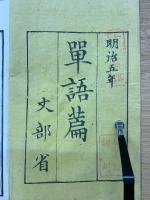 明治五年
單語篇
文部省